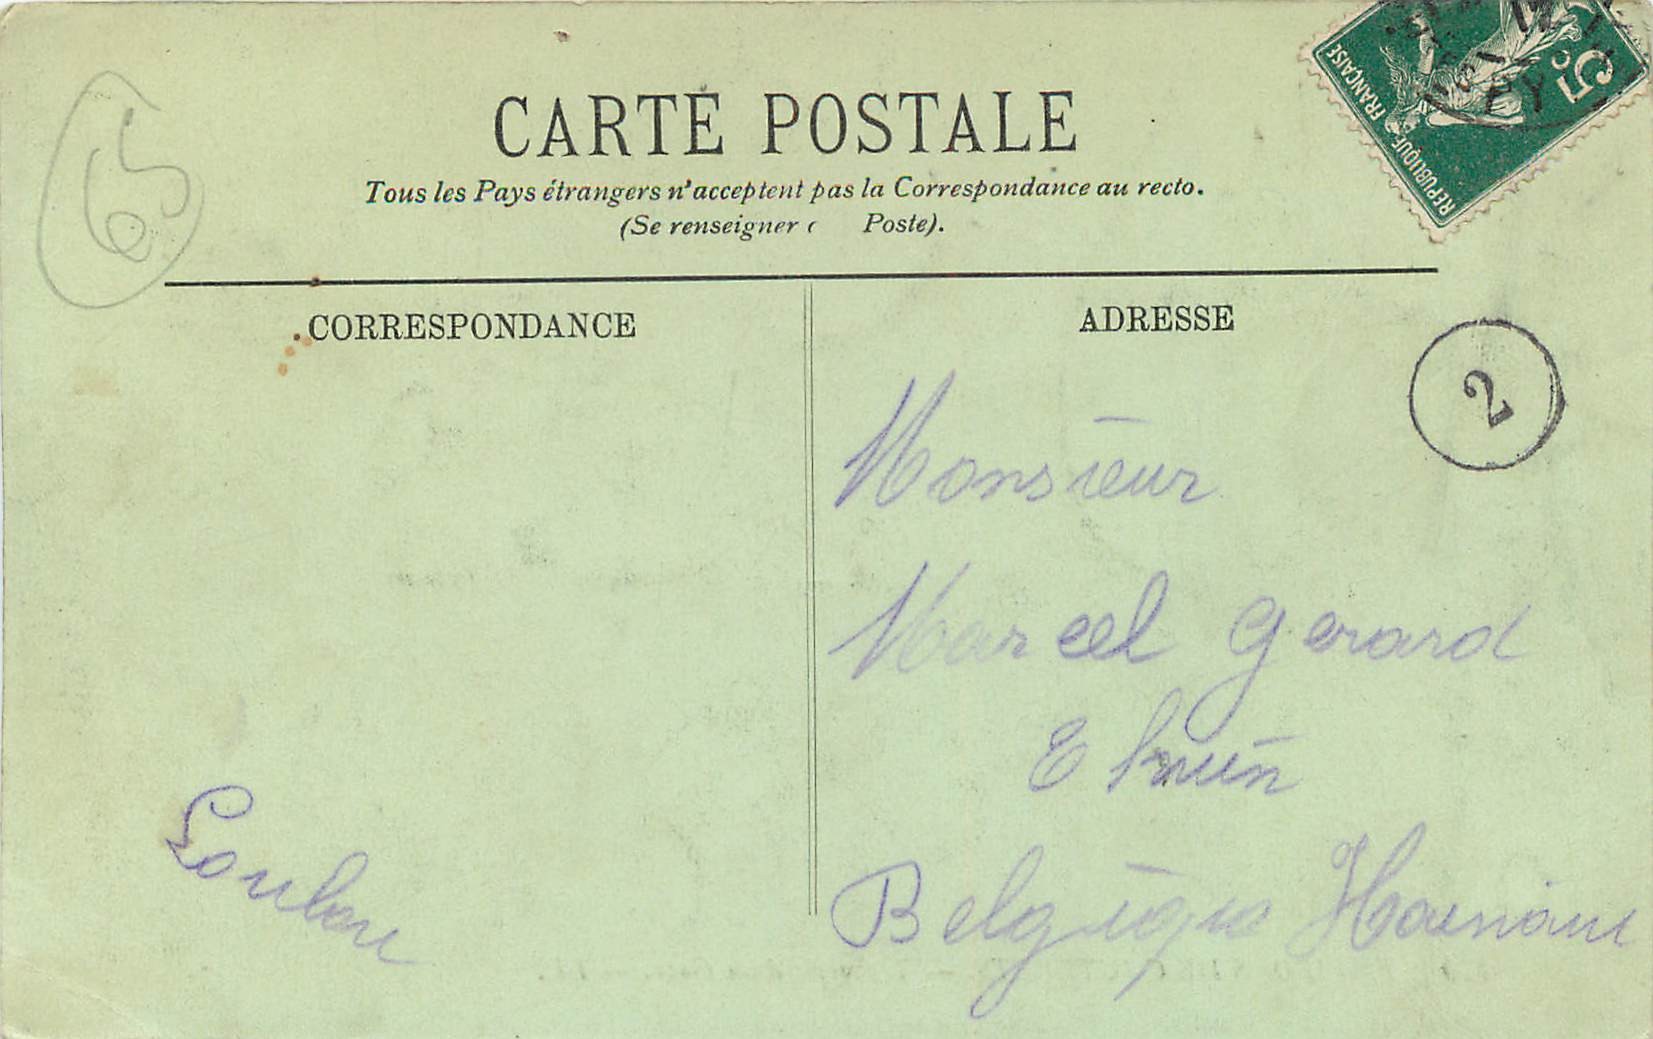 65
CARTE POSTALE
Tous les Pays étrangers n'acceptent pas la Correspondance au recto.
(Se renseigner Poste).
RÉPUBLIQUE FRANÇAISE
5c
CORRESPONDANCE
ADRESSE
2
Monsieur
Marcel Gerard
Belgique